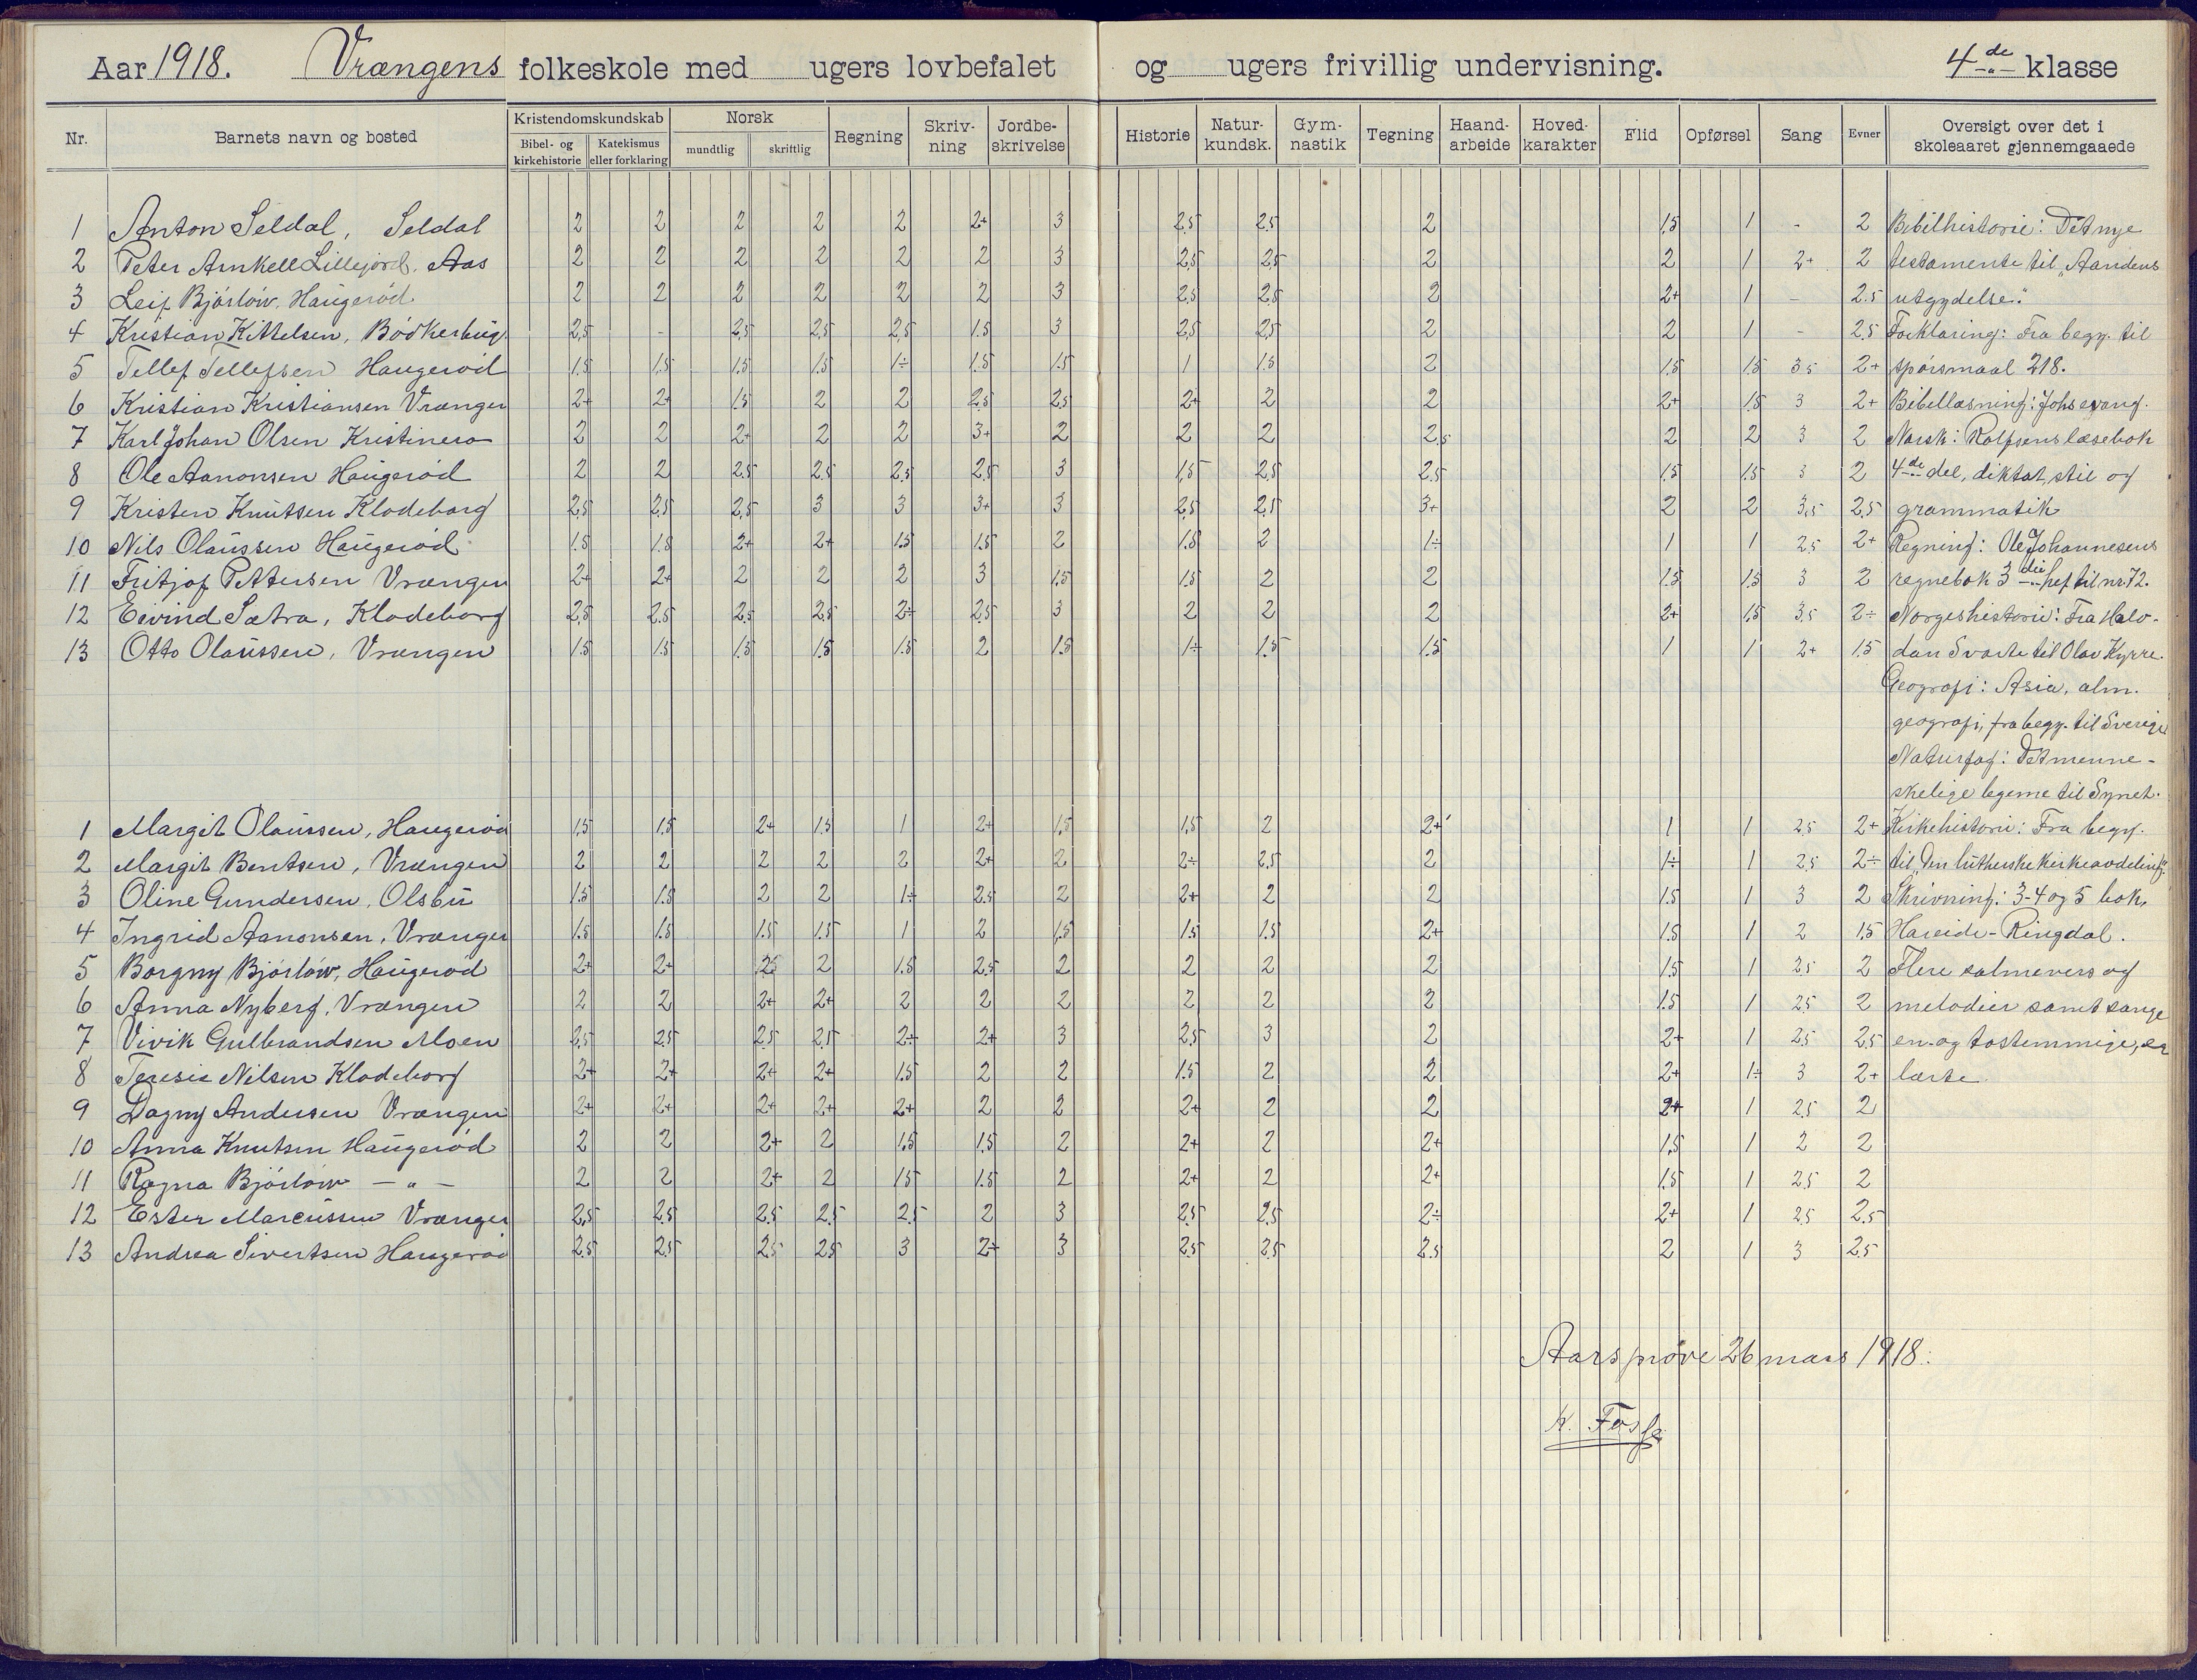 Aar 1918. Vrængens folkeskole med ugers lovbefalet og ugers frivillig undervisning. 4de klasse
Nr. Barnets navn og bosted Kristendomskundskab Norsk Regning Skriv-ning Jordbe-skrivelse Historie Natur-kundsk. Gym-nastik Tegning Haand-arbeide Hoved-karakter Flid Opførsel Sang Evner Oversigt over det i skoleaaret gjennemgaaede
Bibel- og kirkehistorie Katekismus eller forklaring mundtlig skriftlig
1 Anton Seldal, Seldal 2 2 2 2 2 2+ 3 2,5 2,5 2 1,5 1 - 2 Bibelhistorie: Det nye
2 Peter Arnkell Lillejord, Aas 2 2 2 2 2 2 3 2,5 2,5 2 2 1 2+ 2 testamente til „Aandens
3 Leif Bjórlów, Haugeród 2 2 2 2 2 2 3 2,5 2,5 2 2+ 1 - 2.5 utgydelse."
4 Kristian Kittelsen, Bódkerbug. 2,5 - 2,5 2,5 2,5 1.5 3 2,5 2,5 2 2 1 - 2.5 Forklaring: Fra begy. til
5 Tellef Tellefsen Haugeród 1.5 1.5 1.5 1.5 1÷ 1.5 1.5 1 1.5 2 1.5 1.5 3.5 2+ spórsmaal 218.
6 Kristian Kristiansen Vrængen 2+ 2+ 1.5 2 2 2.5 2.5 2+ 2 2 2+ 1.5 3 2+ Bibellæsning: Johs evang.
7 Karl Johan Olsen Kristinero 2 2 2+ 2 2 3+ 2 2 2 2.5 2 2 3 2 Norsk: Rolfsens læsebok
8 Ole Aanonsen Haugeród 2 2 2.5 2.5 2.5 2.5 3 1,5 2.5 2.5 1.5 1.5 3 2 4de del, diktat, stil og
9 Kristen Knutsen Klodeborg 2,5 2,5 2,5 3 3 3+ 3 2,5 2,5 3+ 2 2 3,5 2,5 grammatik
10 Nils Olaussen Haugeród 1.5 1.5 2+ 2+ 1.5 1.5 2 1.5 2 1÷ 1 1 2.5 2+ Regning: Ole Johannesens
11 Fritjof Pettersen Vrængen 2+ 2+ 2 2 2 3 1.5 1.5 2 2 1.5 1.5 3 2 regnebok 3die hef til nr. 72.
12 Eivind Sætra, Klodeborg 2,5 2.5 2.5 2.5 2÷ 2.5 3 2 2 2 2+ 1.5 3.5 2÷ Norgeshistorie: Fra Halv-
13 Otto Olaussen, Vrængen 1.5 1.5 1.5 1.5 1.5 2 1.5 1÷ 1.5 1.5 1 1 2+ 1.5 dan Svarte til Olav Kyrre.
Geografi: Asia, alm.
geografi, fra begy. til Sverige
Naturfag: Det menne-
skelige legeme til Synet.
1 Margit Olaussen, Haugeród 1,5 1,5 2+ 1,5 1 2+ 1,5 1,5 2 2+ 1 1 2,5 2+ Kirkehistorie: Fra begy.
2 Margit Bentsen, Vrængen 2 2 2 2 2 2+ 2 2÷ 2,5 2 1÷ 1 2,5 2÷ til „Den lutherske kirkeavdeling".
3 Oline Gundersen, Olsbu 1.5 1.5 2 2 1÷ 2.5 2 2+ 2 2 1.5 1 3 2 Skrivning: 3-4 og 5 bok,
4 Ingrid Aanonsen, Vrængen 1.5 1.5 1.5 1.5 1 2 1.5 1.5 1.5 2+ 1.5 1 2 1.5 Hareide-Ringdal.
5 Borgny Bjórlów, Haugeród 2+ 2+ 2.5 2 1.5 2.5 2 2 2 2 1.5 1 2.5 2 Flere salmevers og
6 Anna Nyberg, Vrængen 2 2 2+ 2+ 2 2 2 2 2 2 1.5 1 2.5 2 melodier samt sange
7 Vivik Gulbrandsen Moen 2,5 2.5 2.5 2,5 2÷ 2+ 3 2,5 3 2 2+ 1 2.5 2.5 en- og tostemmige, er
8 Teresie Nilsen Klodeborg 2+ 2+ 2+ 2+ 1.5 2 2 1.5 2 2 2+ 1÷ 3 2+ lærte.
9 Dagny Andersen Vrængen 2+ 2+ 2+ 2+ 2+ 2 2 2+ 2 2 2+ 1 2.5 2
10 Anna Knutsen Haugeród 2 2 2+ 2 1,5 1.5 2 2+ 2 2+ 1,5 1 2 2
11 Ragna Bjórlów - " - 2 2 2+ 2 1.5 1.5 2 2+ 2 2+ 1.5 1 2.5 2
12 Ester Marcussen Vrængen 2,5 2.5 2.5 2.5 2.5 2 3 2,5 2,5 2÷ 2+ 1 2.5 2.5
13 Andrea Sivertsen Haugeród 2.5 2.5 2.5 2.5 3 2+ 3 2.5 2.5 2.5 2 1 3 2.5
Aarsprøve 26 mars 1918.
K. Fosse